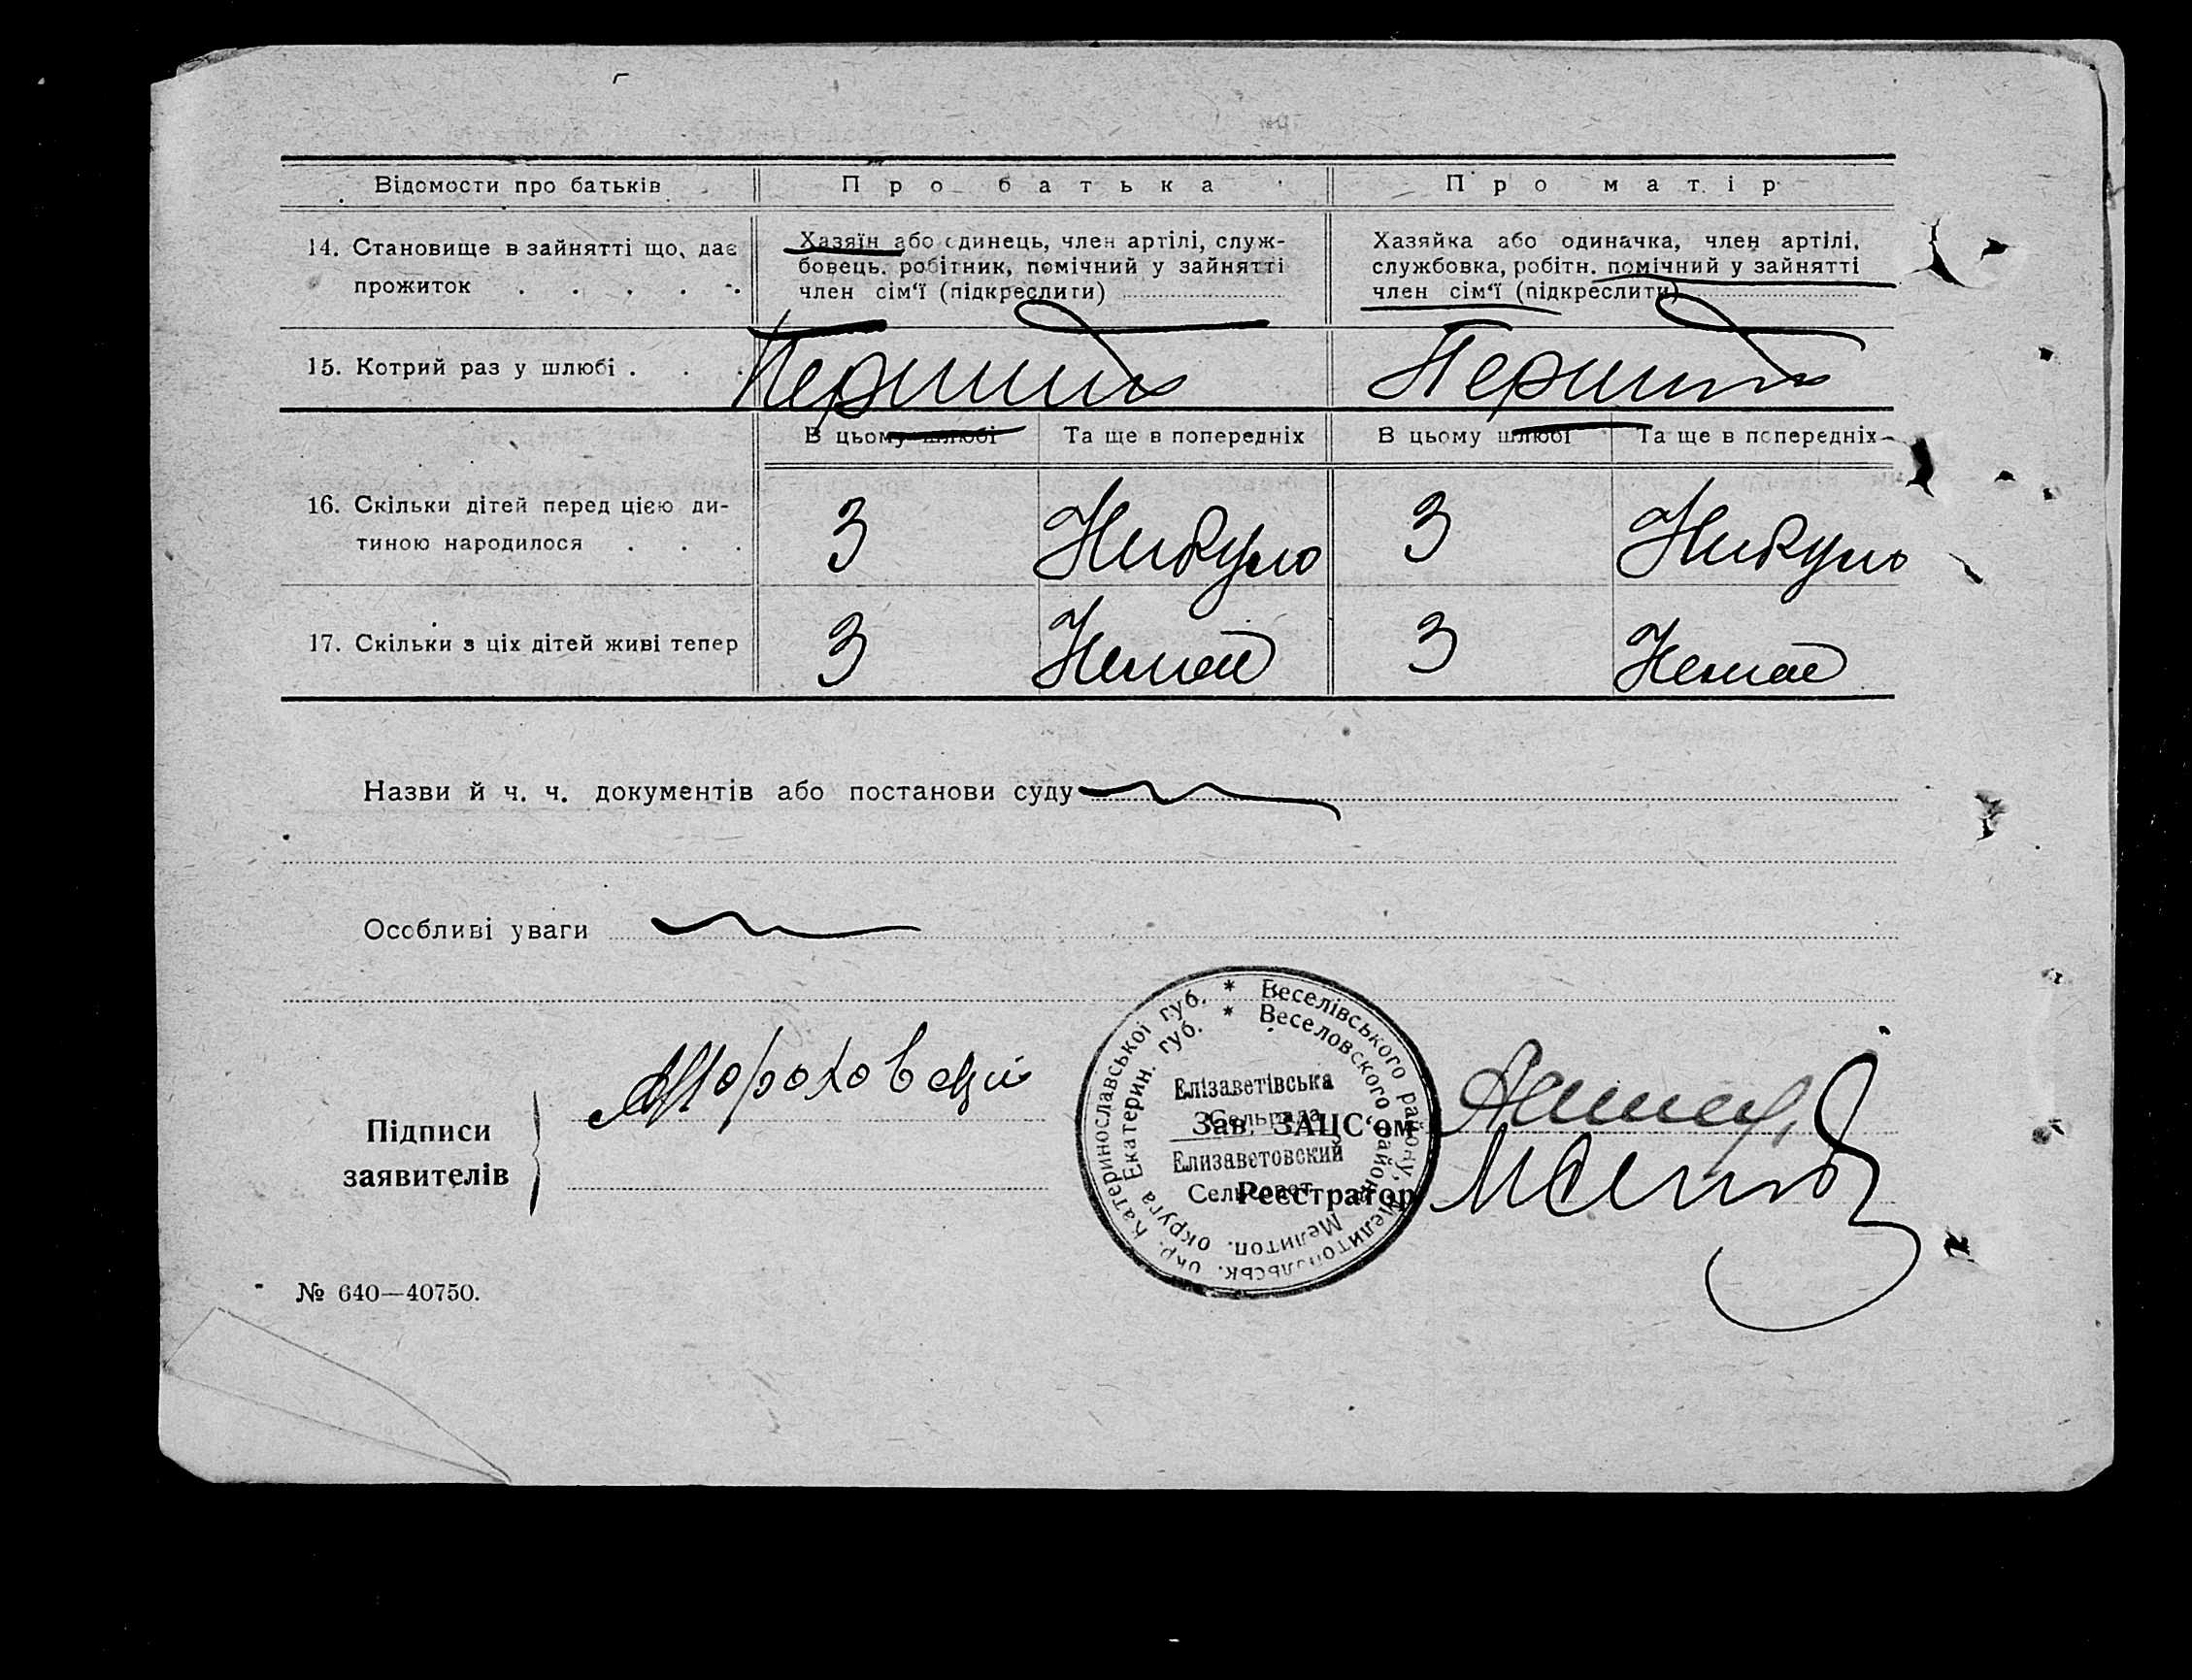 Відомости про батьків
Про батька
Про матір
14. Становище в зайнятті що, дає
прожиток . . . . .
Хазяїн або єдинець, член артілі, служ-
бовець, робітник, помічний у зайнятті
член сім'ї (підкреслити)
Хазяйка або одиначка, член артілі,
службовка, робітн. помічний у зайнятті
член сім'ї (підкреслити)
15. Котрий раз у шлюбі . . .
Перший
Перший
В цьому шлюбі
Та ще в попередніх
В цьому шлюбі
Та ще в попередніх
16. Скільки дітей перед цією ди-
тиною народилося . . .
3
Небуло
3
Небуло
17. Скільки з ціх дітей живі тепер
3
Немає
3
Немає
Назви й ч. ч. документів або постанови суду
Особливі уваги
Підписи
заявителів
Зав. ЗАЦС'ом
Реєстратор
* Веселівського району, Мелитопольськ. окр. Катеринославської губ.
* Веселовского района Мелитоп. округа Екатерин. губ.
Елізаветівська
Сельрада
Елизаветовский
Сельсовет
№ 640—40750.